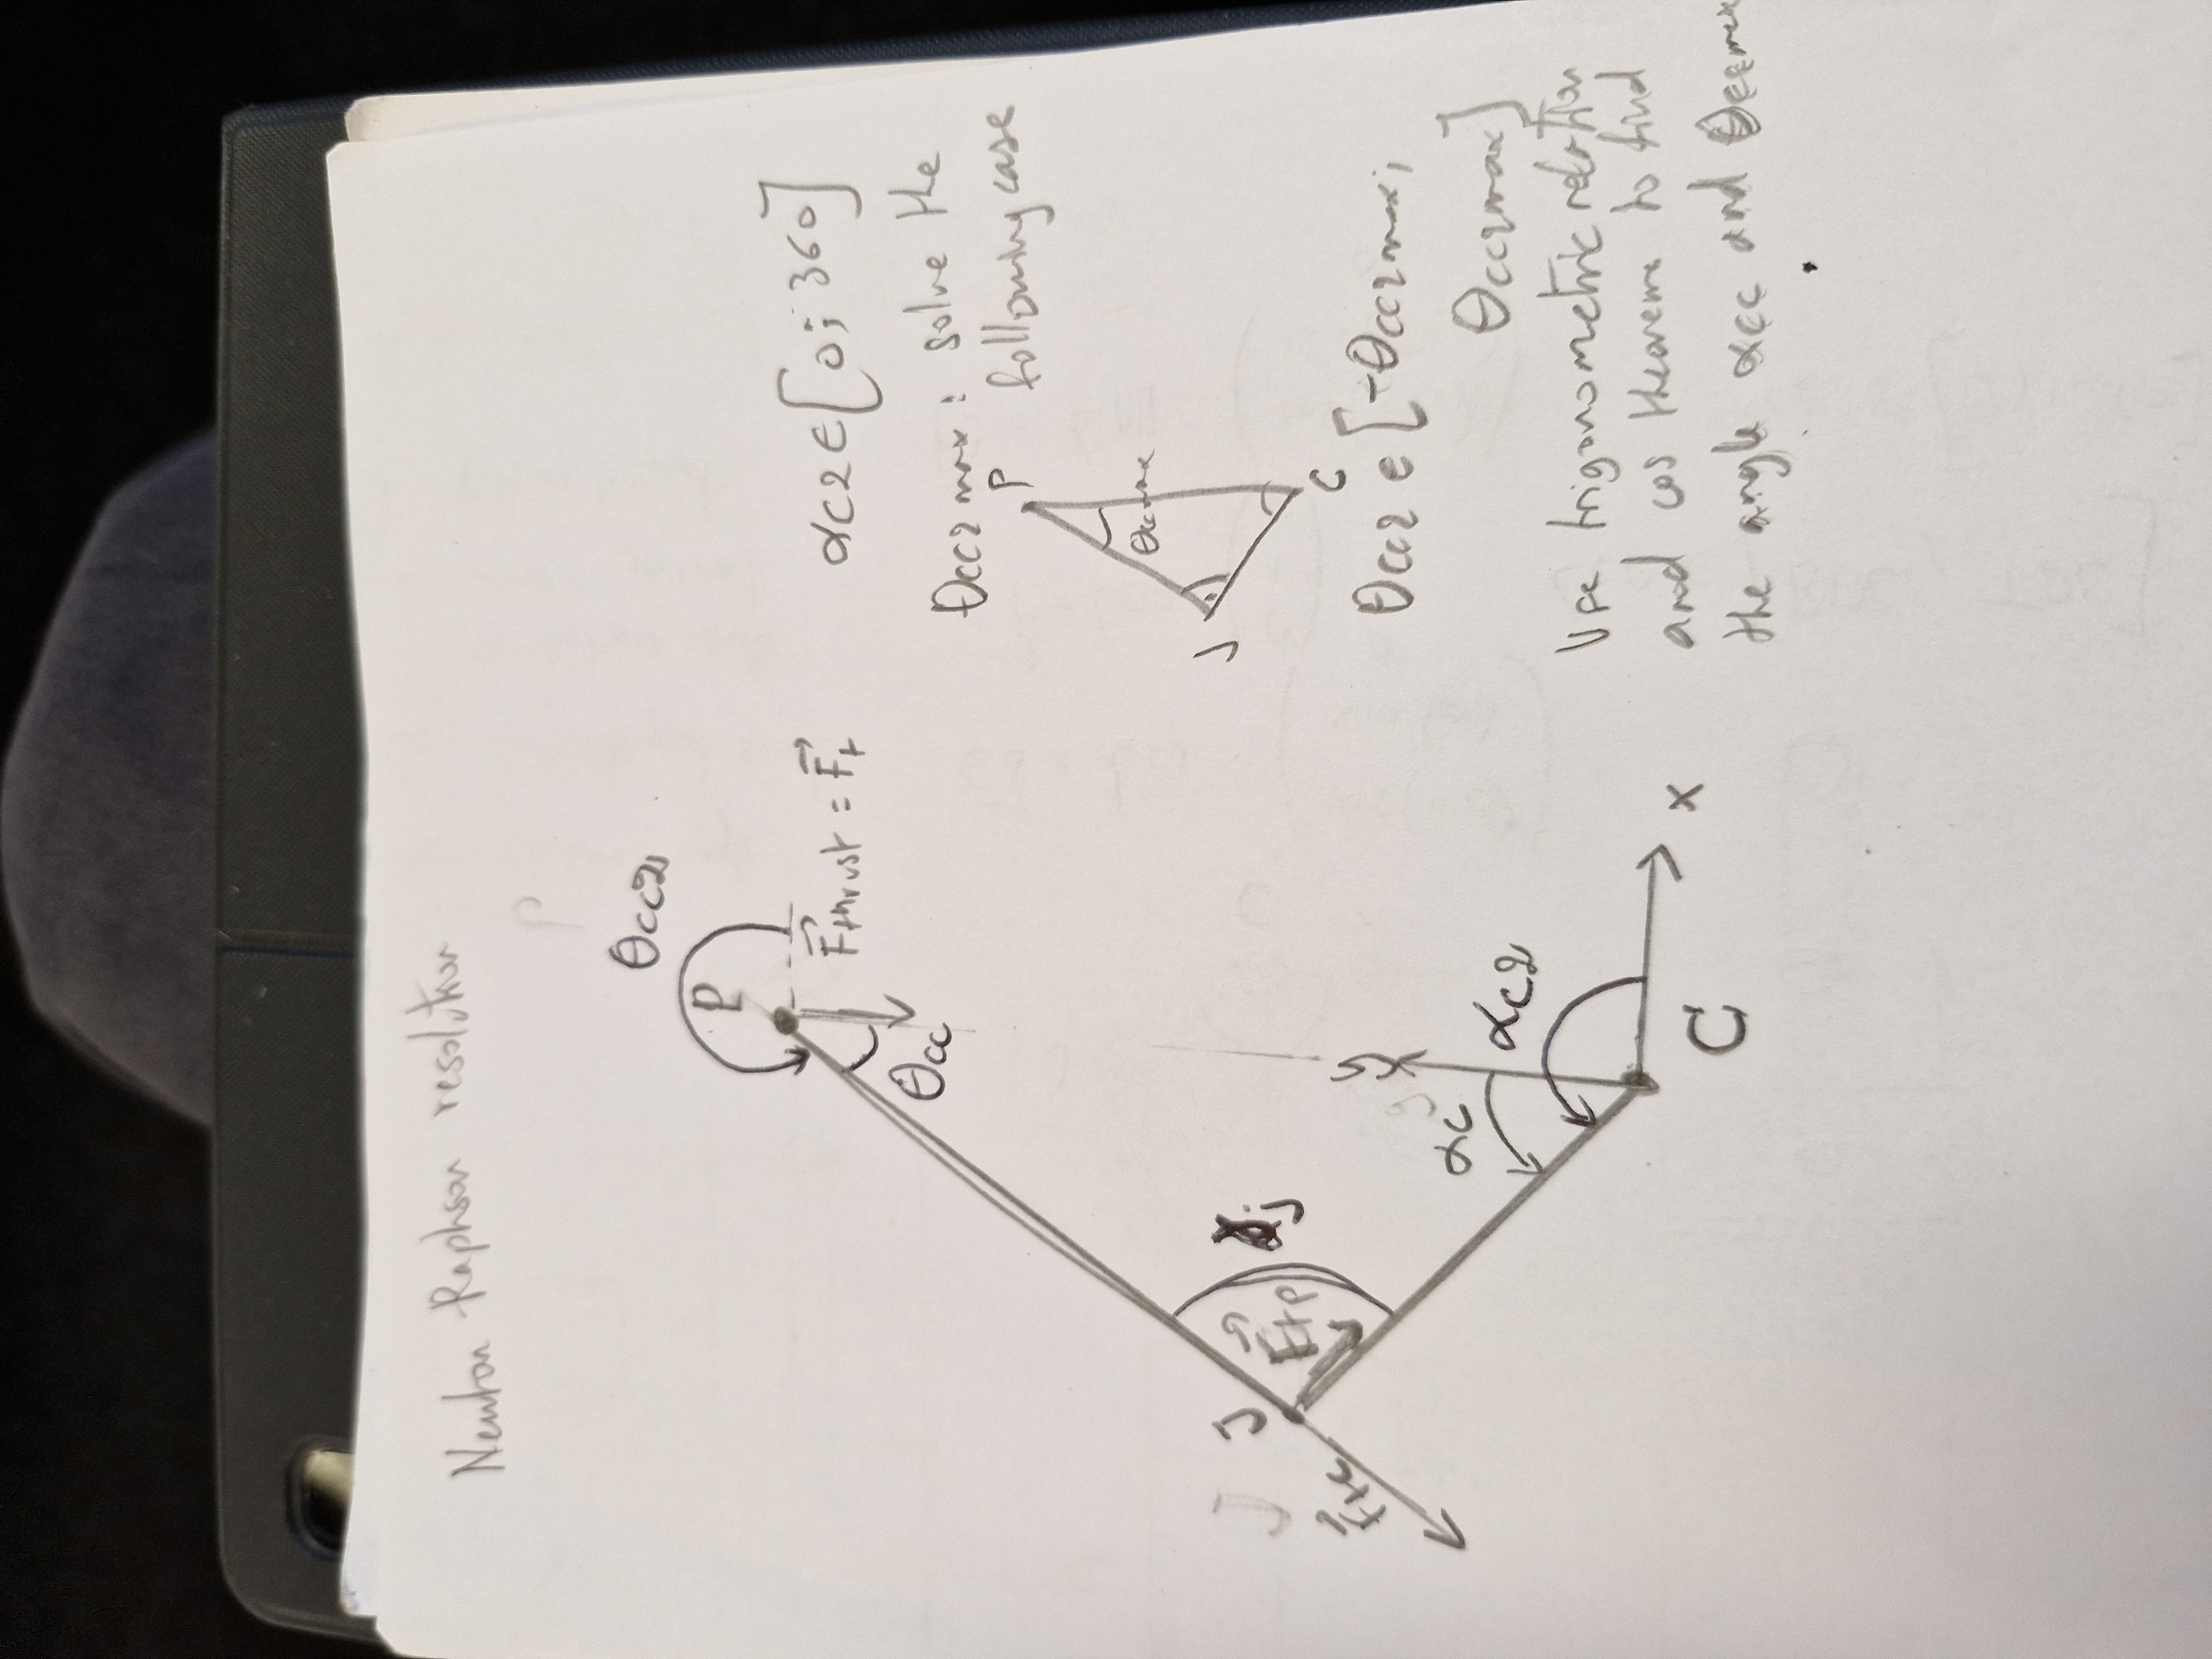 Newton Raphson resolution
P
θcc2
P
F⃗thrust = F⃗t
θcc
αc2 ∈ [0; 360]
θcc2 max : solve the
following case
P
θccmax
J
C
J
J
F⃗tp
γj
F⃗tc
y
αc
αc2
C
x
θcc2 ∈ [-θcc2max;
θcc2max]
Use trigonometric relation
and cos theoreme to find
the angle αcc and θccmax